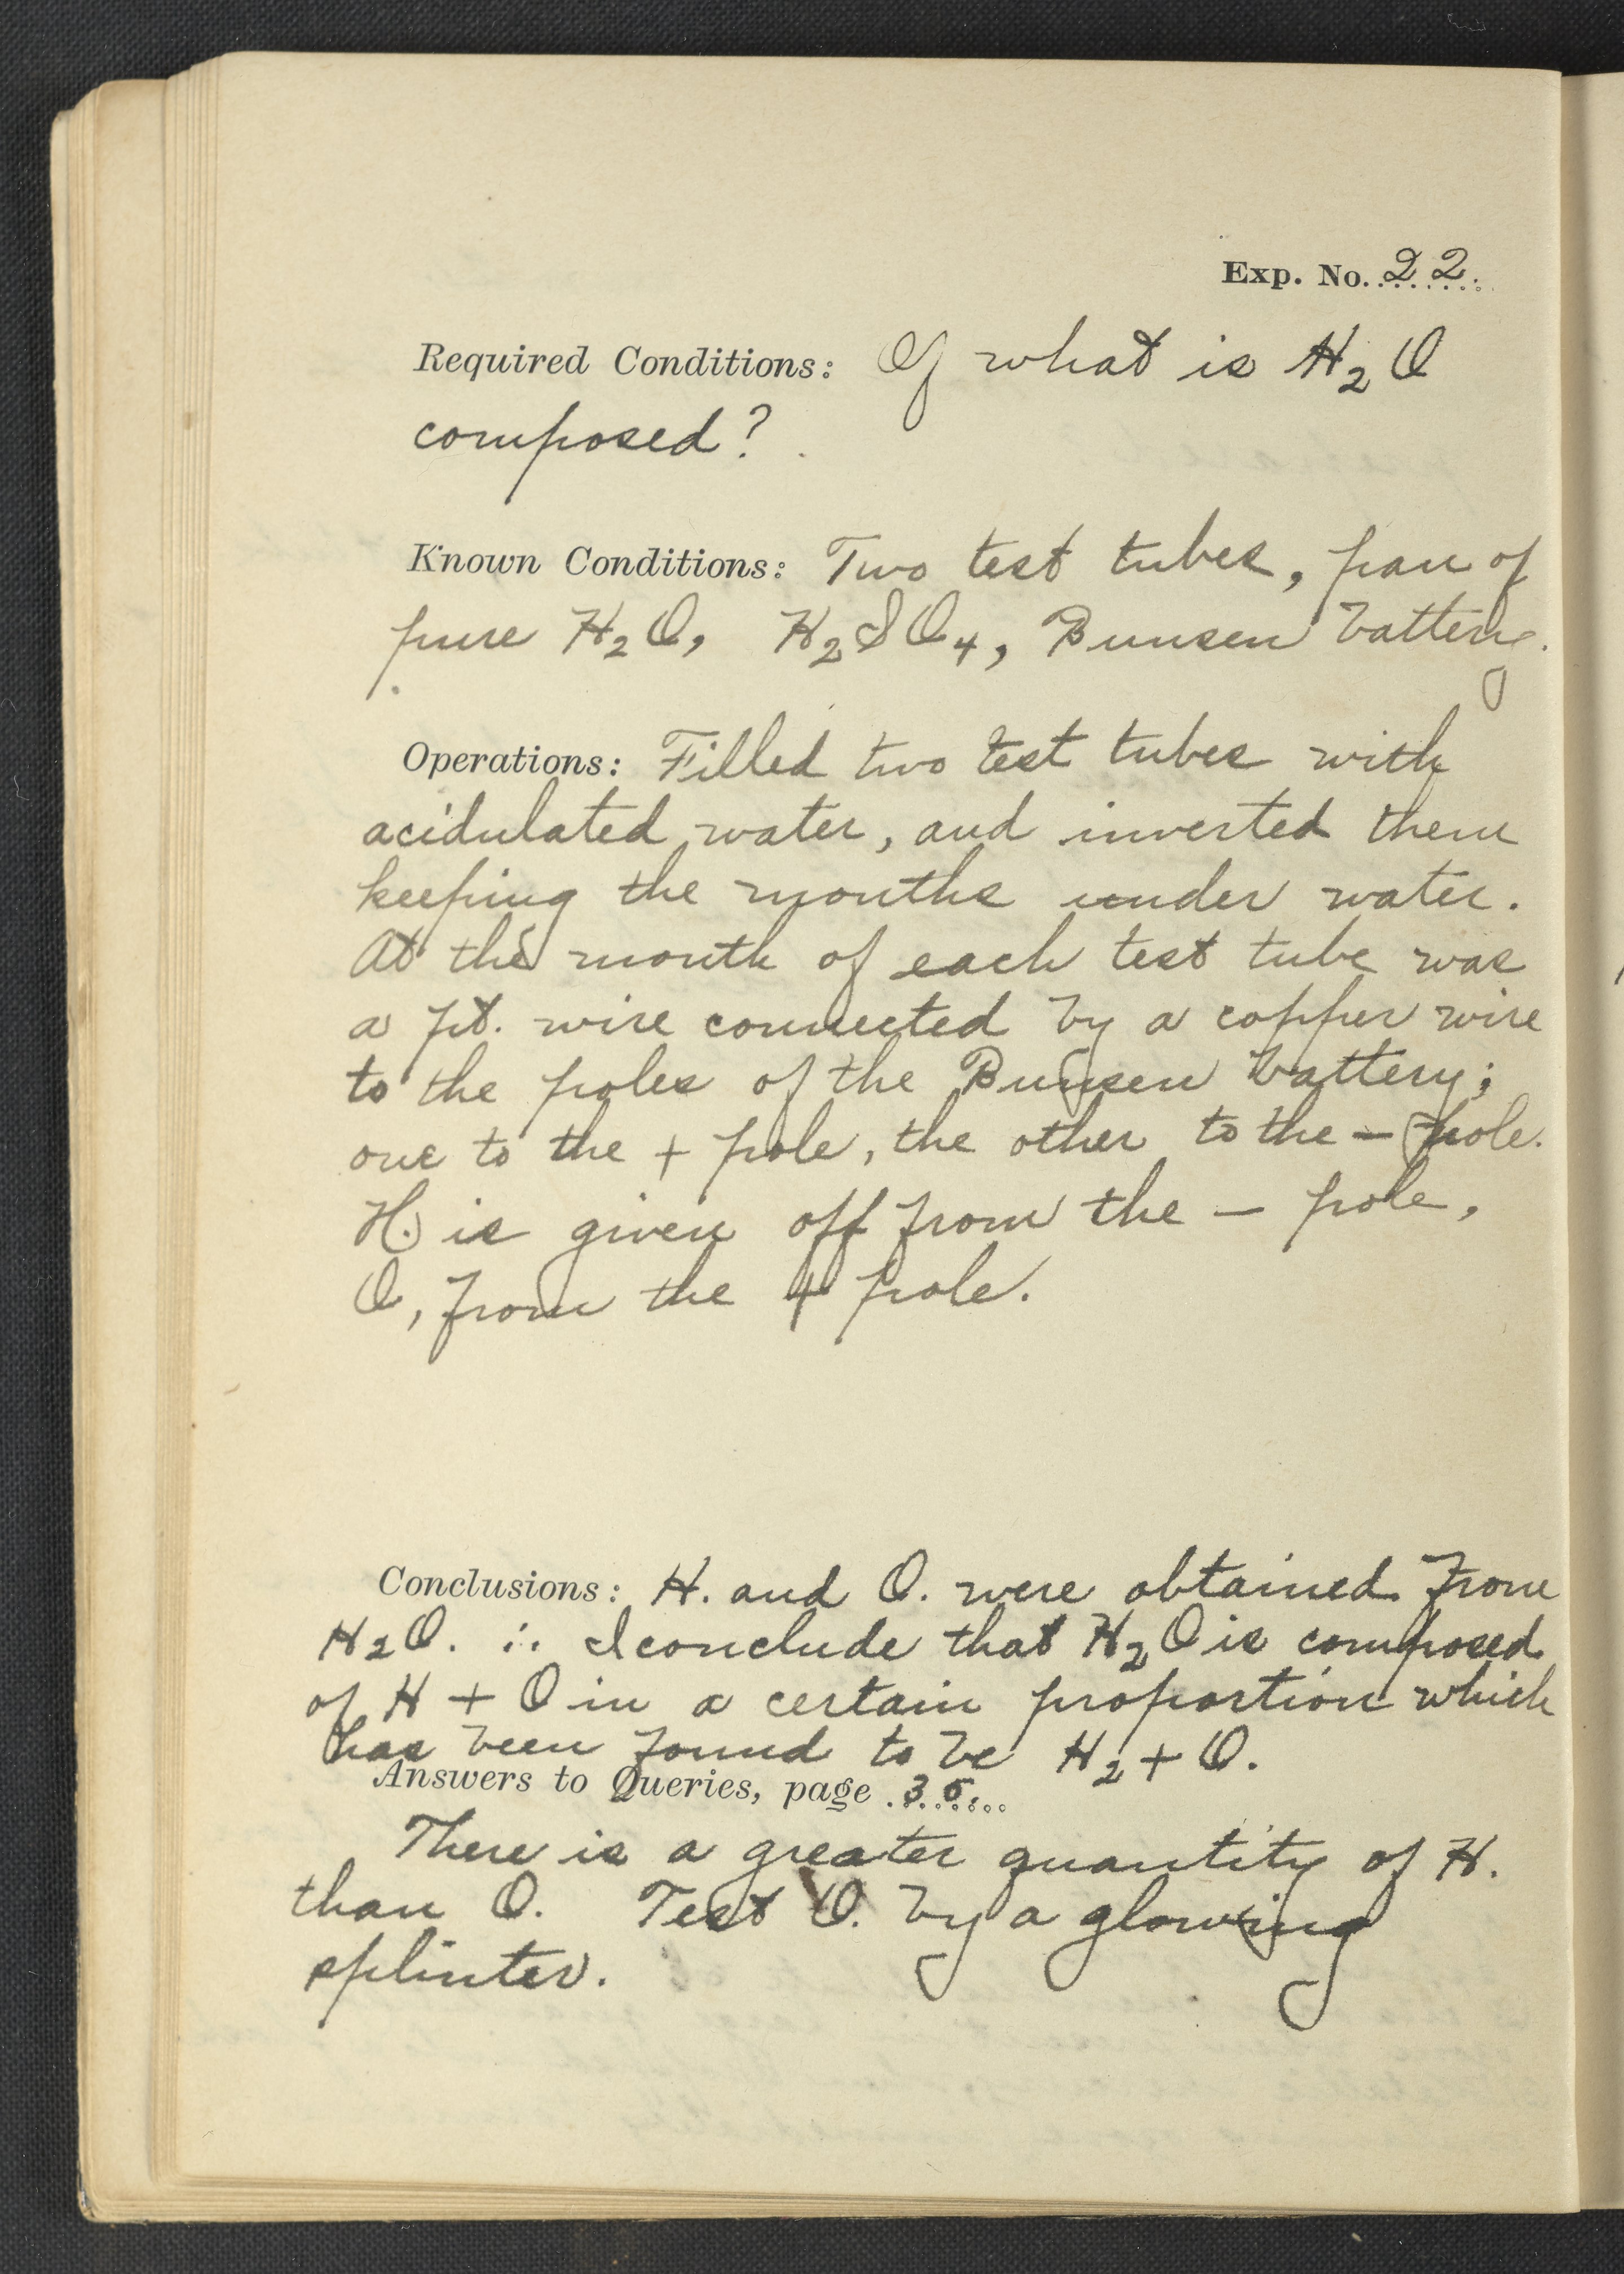 Exp. No. 22.
Required Conditions: Of what is H₂O
composed?
Known Conditions: Two test tubes, pan of
pure H₂O, H₂SO₄, Bunsen battery.
Operations: Filled two test tubes with
acidulated water, and inverted them
keeping the mouths under water.
At the mouth of each test tube was
a pt. wire connected by a copper wire
to the poles of the Bunsen battery;
one to the + pole, the other to the – pole.
H. is given off from the – pole,
O, from the + pole.
Conclusions: H. and O. were obtained from
H₂O. ∴ I conclude that H₂O is composed
of H + O in a certain proportion which
has been found to be H₂ + O.
Answers to Queries, page 35.
There is a greater quantity of H.
than O. Test O. by a glowing
splinter.